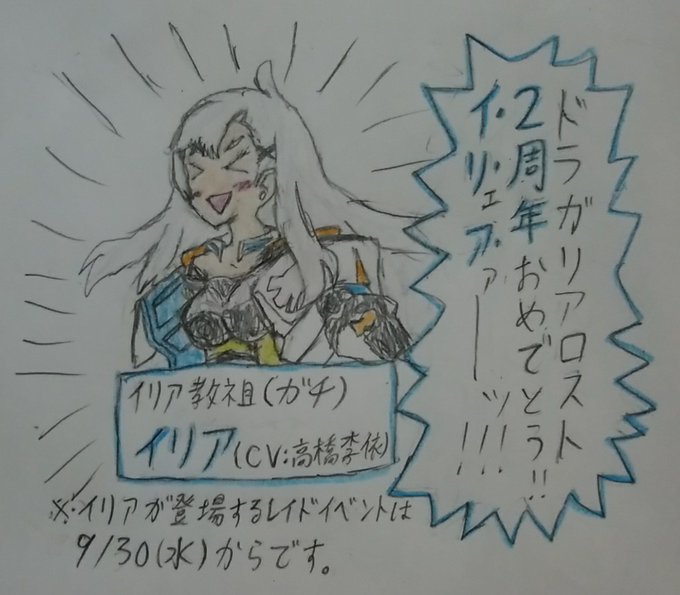 ドラガリアロスト
2周年おめでとう!!
イ・リ・ェアァーーッ!!!
イリア教祖(ガチ)
イリア(CV:高橋李依)
※イリアが登場するレイドイベントは
9/30(水)からです。